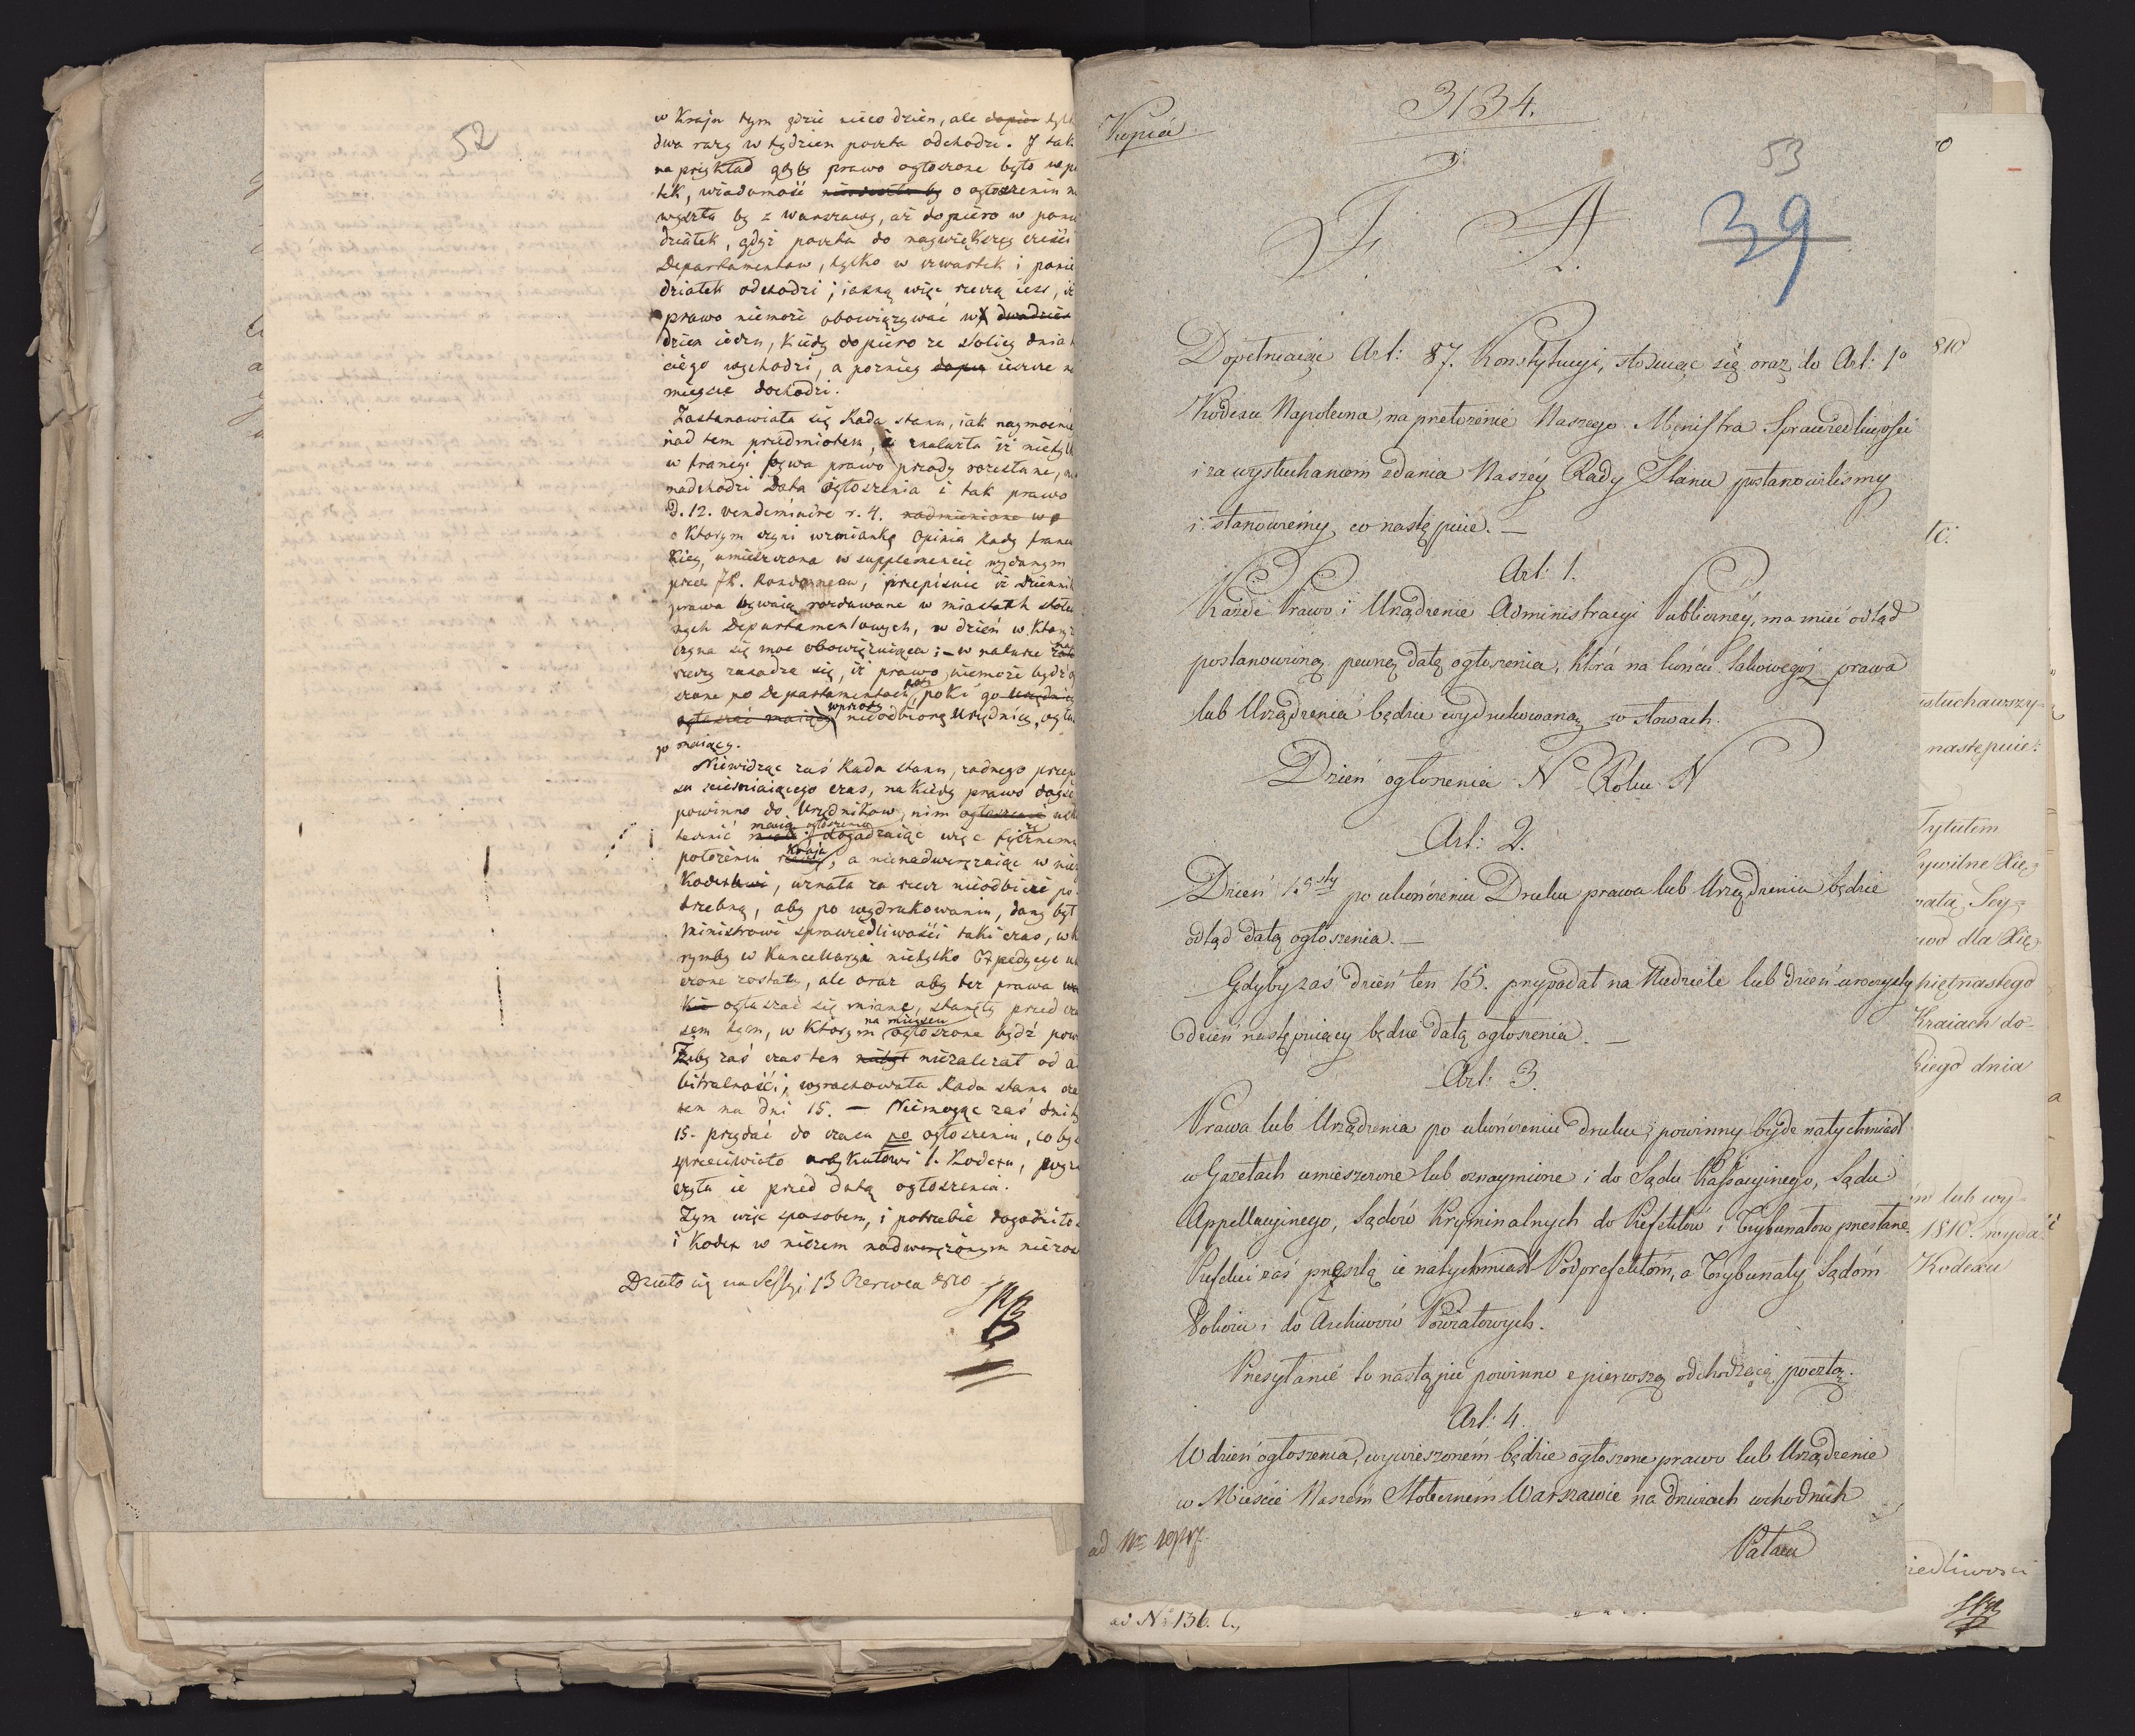 52
w Kraju tym gdzie nieco dzien, ale dopiero tyl
dwa razy w tydzien poczta odchodzi. J tak
na przykład gdyby prawo ogłoszone było w pi
tek, wiadomość o ogłoszeniu n
wyszła by z Warszawy, aż dopiero w ponie
działek, gdyż poczta do naywiększey części
Departamentow, tylko w czwartek i ponie
działek odchodzi; iasną więc rzeczą iest, iż
prawo niemoże obowiązywać w
dzien ieden, kiedy dopiero ze stolicy dnia t
ciego wychodzi, a pozniey ieszcze na
mieysce dochodzi.
Zastanawiała się Rada stanu, iak naymocnie
nad tem przedmiotem, i znalazła iż nietyl
w francyi bywa prawo przody rozesłane, n
nadchodzi Data ogłoszenia i tak prawo
d. 12. vendemiaire r. 4. nadmienione w
o ktorym czyni wzmiankę Opinia Rady francu
kiey, umieszczona w supplemencie wydanym
przez JP. Rondonneau, przepisuie iż Dzienni
prawa bywaią rozdawane w miastach stołec
nych Departamentowych, w dzień w ktory
czyna się moc obowięzuiąca; – w naturze
rzeczy zasadza się, iż prawo niemoże bydź o
szone po Departamentach poty poki go urzędnicy
ogłaszać maiący wprzody nieodbiorą Urzędnicy, ogła
go maiący.
Niewidząc zaś Rada stanu, żadnego przep
su ścieśniaiącego czas, na kiedy prawo doyść
powinno do Urzędnikow, nim ogłoszenie usku
tecznić maią ogłoszenie dogadzaiąc więc fizycznemu
położeniu Kraju, a nienadwerężaiąc w nic
Kodexowi, uznała za rzecz nieodbicie po
trzebną, aby po wydrukowaniu, dany był
Ministrowi sprawiedliwości taki czas, w k
rymby w Kancellaryi nietylko Expedycye u
czone zostały, ale oraz aby też prawa
ogłaszać się miane, stanęły przed cza
sem tem, w ktorym na mieyscu ogłoszone bydź pow
Żeby zaś czas ten niezależał od a
bitralności, wyrachowała Rada stanu cza
ten na dni 15. – Niemogąc zaś dni ty
15. przydać do czasu po ogłoszeniu, co by
sprzeciwiało artykułowi 1. Kodexu, przyz
czyła ie przed datą ogłoszenia.
Tym więc sposobem, i potrzebie dogodziło
i Kodex w niczem nadwerężonym niezos
Działo się na Sessyi 13 Czerwca 1810
3134.
Kopia
53
39
F. A.
Dopełniaiąc Art: 87. Konstytucyi, stosuiąc się oraz do Art: 1º
Kodexu Napoleona, na przełożenie Naszego Ministra Sprawiedliwości
i za wysłuchaniem zdania Naszéy Rady Stanu postanowiliśmy
i stanowiemy co następuie. –
Art: 1.
Każde Prawo i Urządzenie Administracyi Publicznéy, ma mieć odtąd
postanowioną pewną datę ogłoszenia, która na końcu takowegóż prawa
lub Urządzenia będzie wydrukowaną w słowach.
Dzień ogłoszenia N Roku N
Art: 2.
Dzień 15sty po ukończeniu Druku prawa lub Urządzenia będzie
odtąd datą ogłoszenia. –
Gdyby zaś dzień ten 15. przypadał na Niedziele lub dzień uroczysty
dzień następuiący będzie datą ogłoszenia. –
Art: 3.
Prawa lub Urządzenia po ukończeniu druku, powinny bydz natychmiast
w Gazetach umieszczone lub oznaymione i do Sądu Kassacyinego, Sądu
Appellacyinego, Sądów Kryminalnych do Prefektów i Trybunałow przesłane.
Prefekci zaś prześlą ie natychmiast Podprefektóm, a Trybunały Sądóm
Pokoiu i do Archiwow Powiatowych.
Przesyłanie to nastąpić powinno z pierwszą odchodzącą pocztą.
Art: 4.
W dzień ogłoszenia, wywieszoném będzie ogłoszone prawo lub Urządzenie
w Mieście Naszém Stołeczném Warszawie na drzwiach wchodnich
Pałacu
ad Nr
ad N: 136.
810
tc.
słuchawszy
następuie:
Tytułem
Cywilne Xię
Sey
dla Xię
piętnastego
Kraiach do
kiego dnia
lub wy
1810. wyda
Kodexu
iedliwości